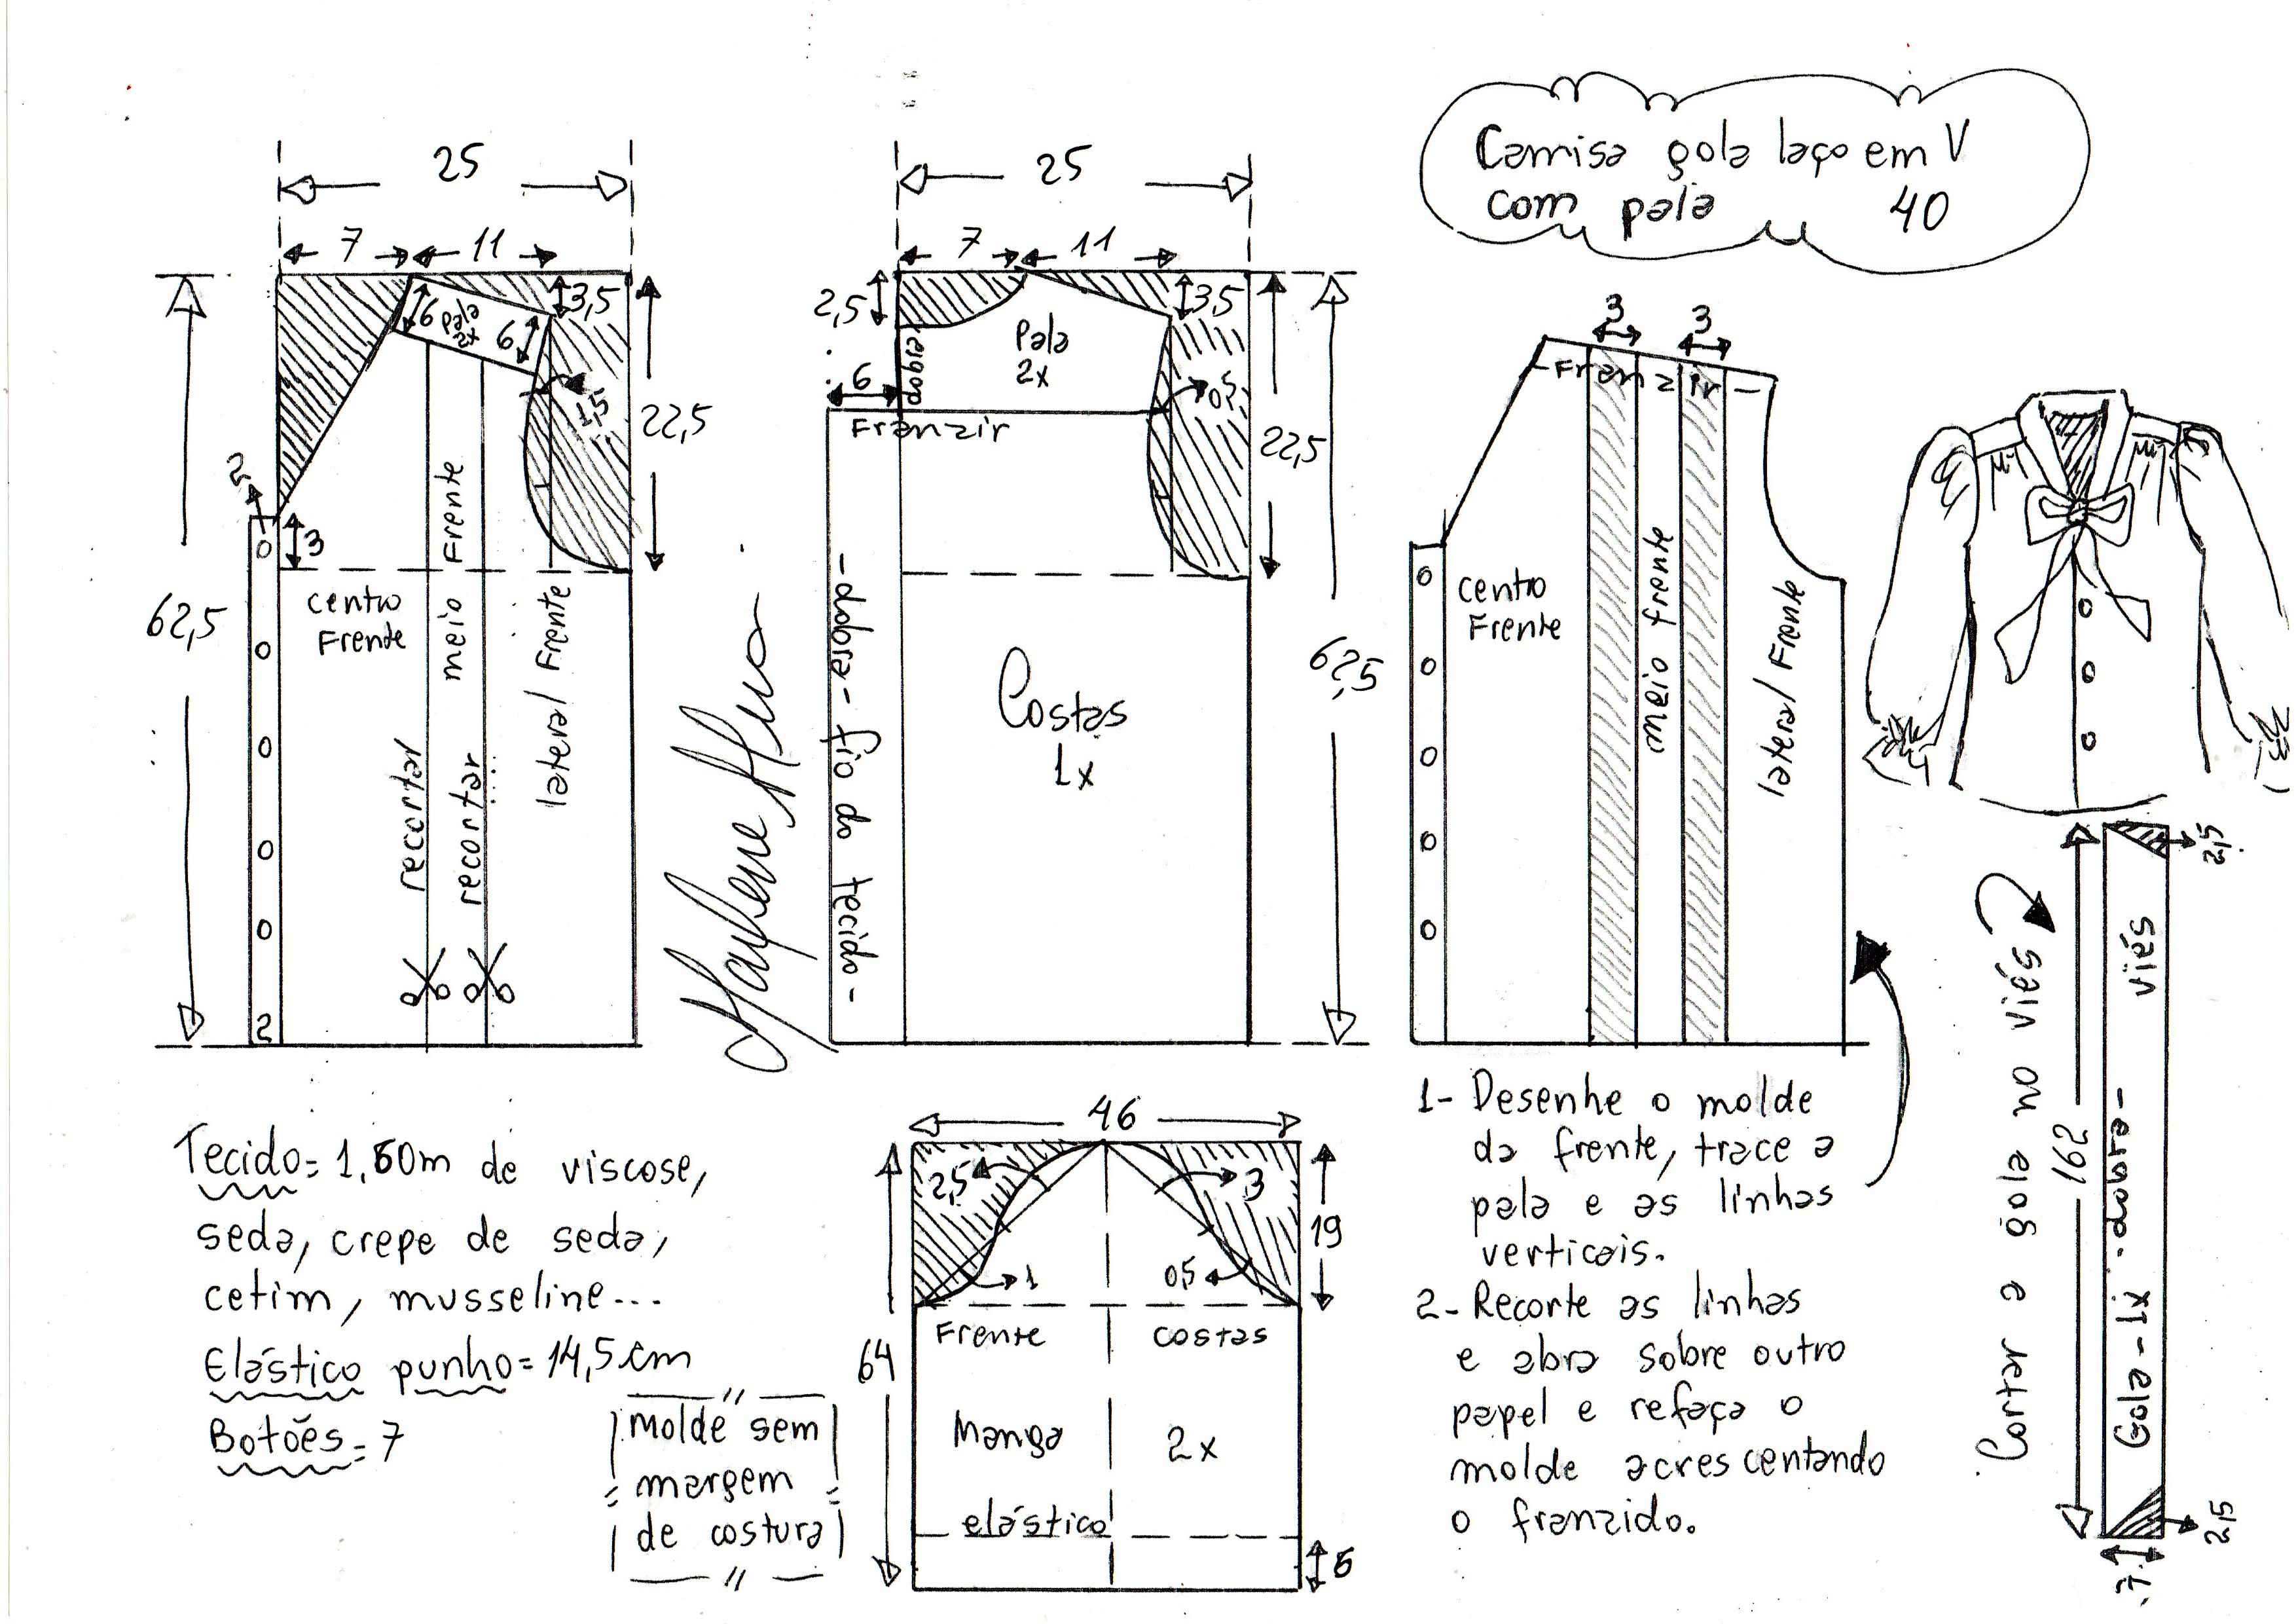 Camisa gola laço em V
com pala 40
25
7 11
3,5
6 pala
2x
6
1,5
22,5
2
3
62,5
centro
Frente
meio Frente
lateral Frente
recortar
recortar
2
25
7 11
2,5
3,5
Pala
2x
dobra
6
0,5
Franzir
22,5
62,5
-dobra- fio do tecido-
Costas
1x
Marlene Mukai
3 3
-Franzir-
centro
Frente
meio frente
lateral Frente
Tecido= 1,60m de viscose,
seda, crepe de seda,
cetim, musseline...
Elástico punho= 14,5 cm
Botões= 7
molde sem
margem
de costura
46
2,5
3
1
0,5
19
64
Frente costas
Manga 2x
elástico
5
1- Desenhe o molde
da frente, trace a
pala e as linhas
verticais.
2- Recorte as linhas
e abra sobre outro
papel e refaça o
molde acrescentando
o franzido.
Cortar a gola no viés
162
2,5
viés
Gola-1x -dobra-
2,5
7